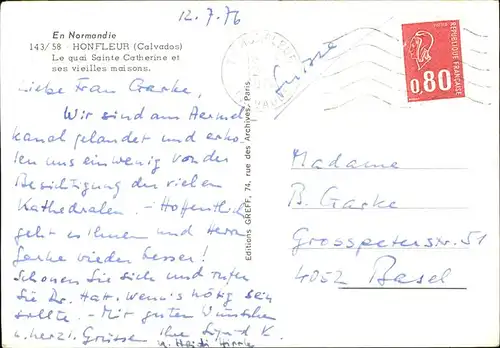 12.7.76
En Normandie
143/58 - HONFLEUR (Calvados)
Le quai Sainte Catherine et
ses vieilles maisons.
Suisse
RÉPUBLIQUE FRANÇAISE
0,80
Liebe Frau Gerke,
Wir sind am Aermel
kanal gelandet und erho-
len uns ein wenig von der
Besichtigung der vielen
Kathedralen. - Hoffentlich
geht es Ihnen und Herrn
Gerke wieder besser!
Schonen Sie sich und rufen
Sie Dr. Hatt, wenn's nötig sein
sollte. - Mit guten Wünschen
u. herzl. Grüssen Ihre K.
u. Heidi
Editions GREFF, 74, rue des Archives, Paris
Madame
B. Gerke
Grosspeterstr. 51
4052 Basel